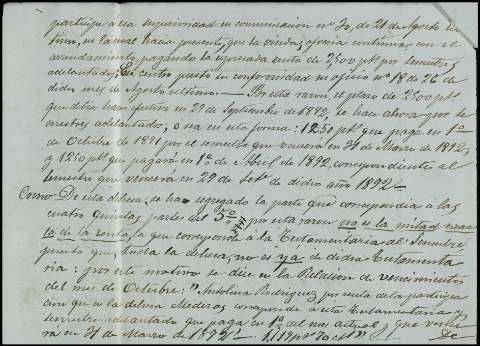 participe a esa superioridad en comunicacion nº 30, de 21 de Agosto úl-
timo, en la cual hacia presente, que la viuda, ofrecia continuar con el
arrendamiento, pagando la expresada renta de 2,500 ptˢ por semestres
adelantados; Ese centro prestó su conformidad en oficio nº 18 de 26 de
dicho mes de Agosto ultimo. — Por esta razon, el plazo de 2500 ptˢ
que debia hacer efectivo en 29 de Septiembre de 1892, se hace ahora por se-
mestres adelantados, ó sea en esta forma: 1250 ptˢ que pagó en 1º
de Octubre de 1891 por el semestre que vencerá en 31 de Marzo de 1892,
y 1250 ptˢ que pagará en 1º de Abril de 1892, correspondientes al
semestre que vencerá en 29 de Setᵉ de dicho año 1892.
Como De esta dehesa, se ha segregado la parte que correspondia á las
cuatro quintas partes del 5º por esta razon no es la mitad exac-
ta de la renta, la que corresponde á la Testamentaria del
puesto que, toda la dehesa, no es ya de dicha Testamenta-
ria: por este motivo se dice en la Relacion de vencimientos
del mes de Octubre: "Antolina Rodriguez, por renta de la participa-
cion que en la dehesa Mederas corresponde a esta Testamentaria y
semestre adelantado que paga en 1º del mes actual y que vence-
rá en 31 de Marzo de 1892
De